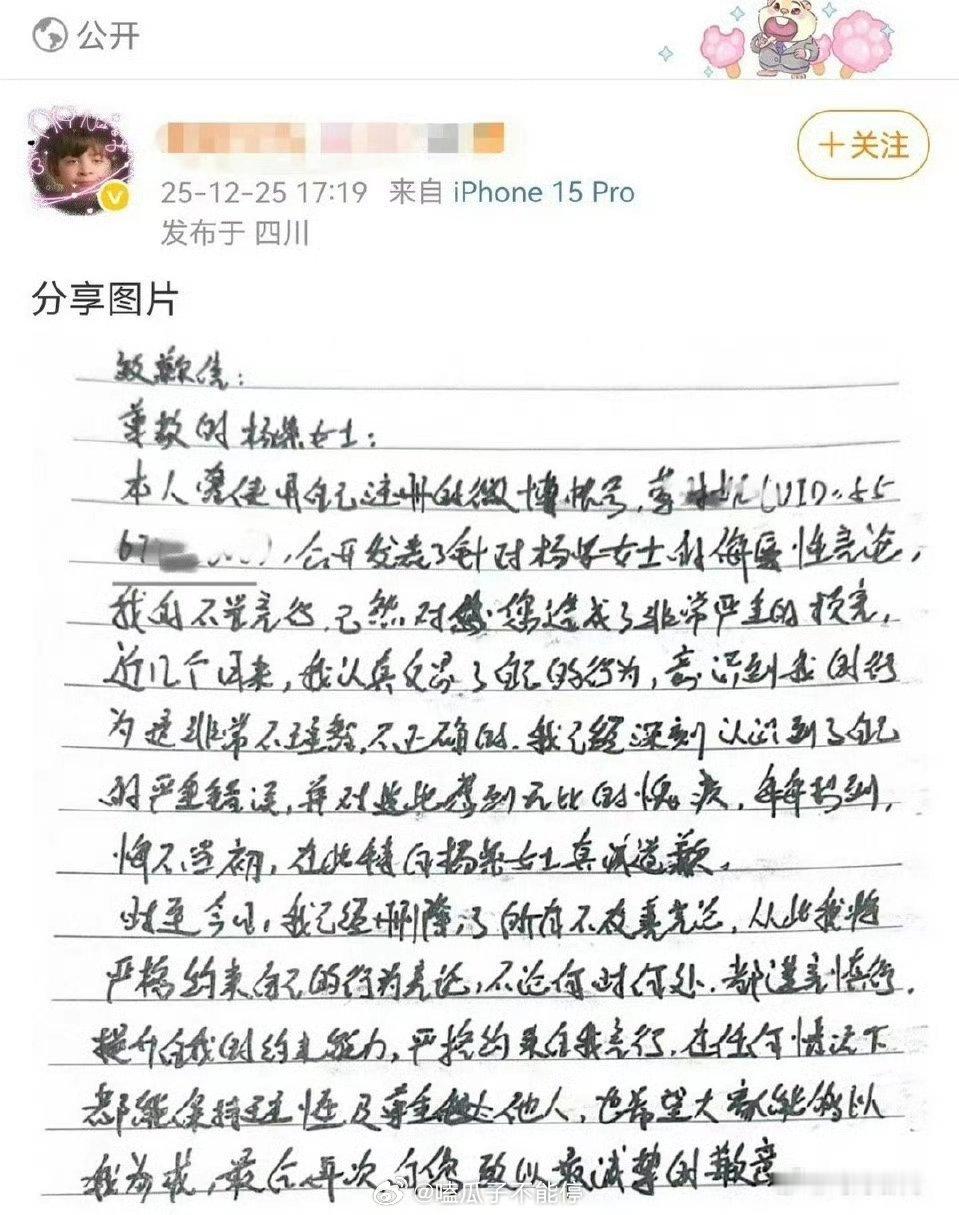 公开
+关注
25-12-25 17:19 来自 iPhone 15 Pro
发布于 四川
分享图片
致歉信：
尊敬的杨 女士：
本人曾使用自己注册的微博帐号， (UID: 55
67 ，公开发表了针对杨 女士的侮辱性言论，
我的不当言行，已然对 您造成了非常严重的损害，
近几个月来，我认真反思了自己的行为，意识到我的行
为是非常不理智，不正确的，我已经深刻认识到了自己
的严重错误，并对此 感到无比的愧疚， 到，
悔不当初，在此特向杨 女士真诚道歉。
时至今日，我已经删除了所有不友善言论，从此我将
严格约束自己的行为言论，不论何时何处，都谨言慎行，
提升自我的约束能力，严格约束自我言行，在任何情况下
都能保持理性及尊重 他人，也希望大家能够以
我为戒，最后再次向您致以最诚挚的歉意
@嗑瓜子不能停